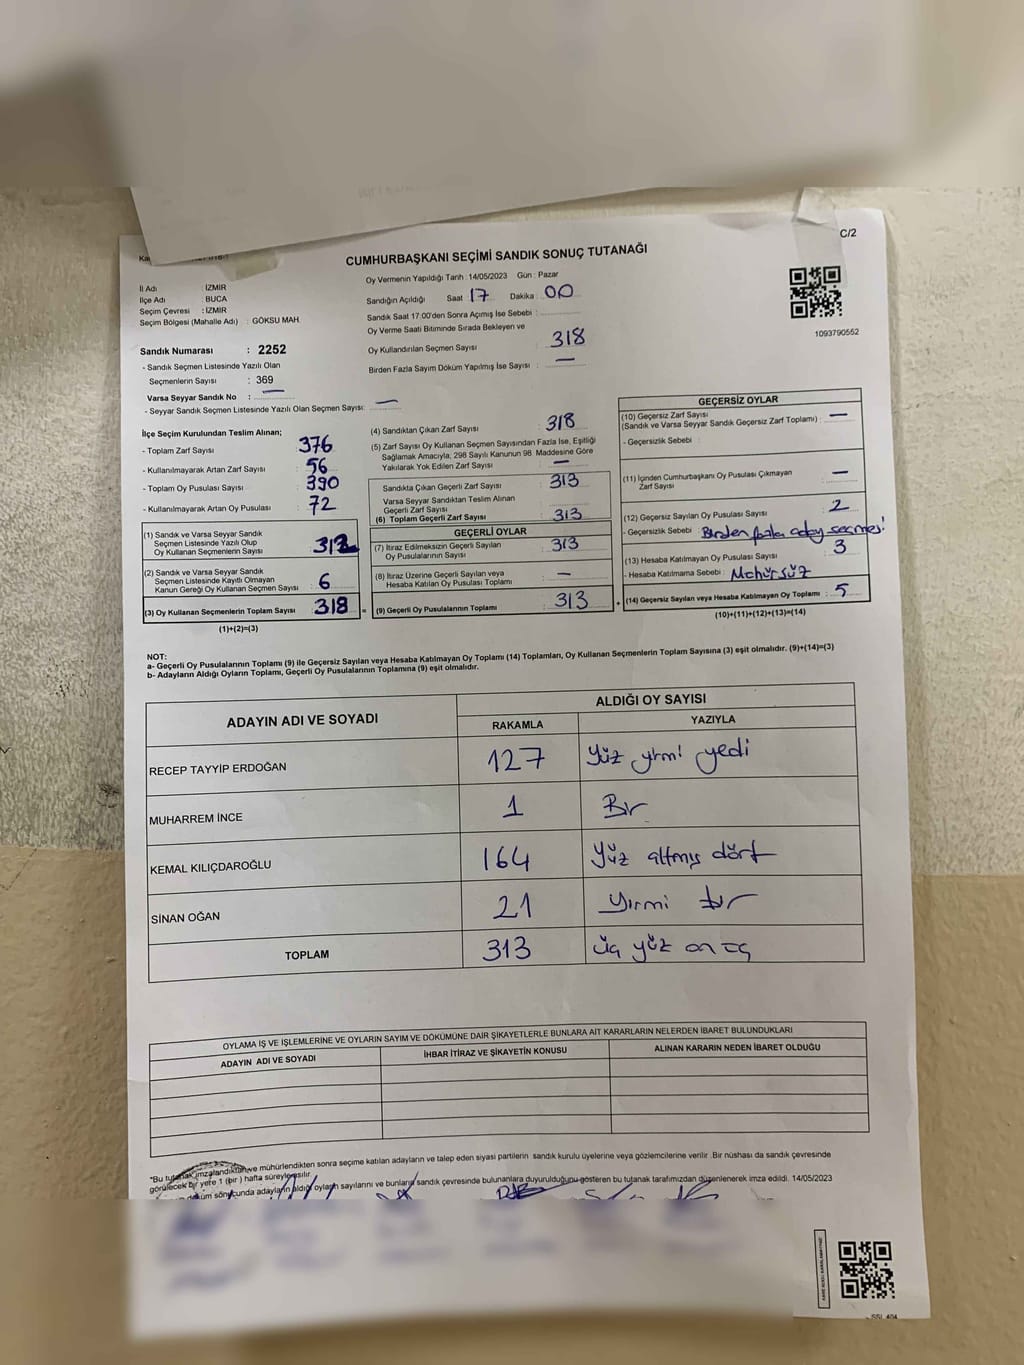 C/2
CUMHURBAŞKANI SEÇİMİ SANDIK SONUÇ TUTANAĞI
İl Adı : İZMİR
İlçe Adı : BUCA
Seçim Çevresi : İZMİR
Seçim Bölgesi (Mahalle Adı) : GÖKSU MAH.
Oy Vermenin Yapıldığı Tarih : 14/05/2023 Gün : Pazar
Sandığın Açıldığı Saat 17 Dakika : 00
Sandık Saat 17:00'den Sonra Açımış İse Sebebi :
Oy Verme Saati Bitiminde Sırada Bekleyen ve
Oy Kullandırılan Seçmen Sayısı 318
Birden Fazla Sayım Döküm Yapılmış İse Sayısı : —
1093790552
Sandık Numarası : 2252
- Sandık Seçmen Listesinde Yazılı Olan
Seçmenlerin Sayısı : 369
Varsa Seyyar Sandık No : —
- Seyyar Sandık Seçmen Listesinde Yazılı Olan Seçmen Sayısı: —
İlçe Seçim Kurulundan Teslim Alınan;
- Toplam Zarf Sayısı 376
- Kullanılmayarak Artan Zarf Sayısı 56
- Toplam Oy Pusulası Sayısı 390
- Kullanılmayarak Artan Oy Pusulası : 72
(1) Sandık ve Varsa Seyyar Sandık
Seçmen Listesinde Yazılı Olup
Oy Kullanan Seçmenlerin Sayısı 312
(2) Sandık ve Varsa Seyyar Sandık
Seçmen Listesinde Kayıtlı Olmayan
Kanun Gereği Oy Kullanan Seçmen Sayısı : 6
(3) Oy Kullanan Seçmenlerin Toplam Sayısı : 318
(1)+(2)=(3)
(4) Sandıktan Çıkan Zarf Sayısı : 318
(5) Zarf Sayısı Oy Kullanan Seçmen Sayısından Fazla İse, Eşitliği
Sağlamak Amacıyla; 298 Sayılı Kanunun 98. Maddesine Göre
Yakılarak Yok Edilen Zarf Sayısı : —
Sandıkta Çıkan Geçerli Zarf Sayısı : 313
Varsa Seyyar Sandıktan Teslim Alınan
Geçerli Zarf Sayısı
(6) Toplam Geçerli Zarf Sayısı : 313
GEÇERLİ OYLAR
(7) İtiraz Edilmeksizin Geçerli Sayılan
Oy Pusulalarının Sayısı : 313
(8) İtiraz Üzerine Geçerli Sayılan veya
Hesaba Katılan Oy Pusulası Toplamı : —
= (9) Geçerli Oy Pusulalarının Toplamı : 313
GEÇERSİZ OYLAR
(10) Geçersiz Zarf Sayısı
(Sandık ve Varsa Seyyar Sandık Geçersiz Zarf Toplamı) : —
- Geçersizlik Sebebi :
(11) İçinden Cumhurbaşkanı Oy Pusulası Çıkmayan
Zarf Sayısı : —
(12) Geçersiz Sayılan Oy Pusulası Sayısı : 2
- Geçersizlik Sebebi : Birden fazla aday seçmesi
(13) Hesaba Katılmayan Oy Pusulası Sayısı : 3
- Hesaba Katılmama Sebebi : Mühürsüz
+ (14) Geçersiz Sayılan veya Hesaba Katılmayan Oy Toplamı : 5
(10)+(11)+(12)+(13)=(14)
NOT:
a- Geçerli Oy Pusulalarının Toplamı (9) ile Geçersiz Sayılan veya Hesaba Katılmayan Oy Toplamı (14) Toplamları, Oy Kullanan Seçmenlerin Toplam Sayısına (3) eşit olmalıdır. (9)+(14)=(3)
b- Adayların Aldığı Oyların Toplamı, Geçerli Oy Pusulalarının Toplamına (9) eşit olmalıdır.
ADAYIN ADI VE SOYADI ALDIĞI OY SAYISI
RAKAMLA YAZIYLA
RECEP TAYYİP ERDOĞAN 127 Yüz yirmi yedi
MUHARREM İNCE 1 Bir
KEMAL KILIÇDAROĞLU 164 Yüz altmış dört
SİNAN OĞAN 21 Yirmi bir
TOPLAM 313 üç yüz on üç
OYLAMA İŞ VE İŞLEMLERİNE VE OYLARIN SAYIM VE DÖKÜMÜNE DAİR ŞİKAYETLERLE BUNLARA AİT KARARLARIN NELERDEN İBARET BULUNDUKLARI
ADAYIN ADI VE SOYADI İHBAR İTİRAZ VE ŞİKAYETİN KONUSU ALINAN KARARIN NEDEN İBARET OLDUĞU
*Bu tutanak imzalandıktan ve mühürlendikten sonra seçime katılan adayların ve talep eden siyasi partilerin sandık kurulu üyelerine veya gözlemcilerine verilir .Bir nüshası da sandık çevresinde
görülecek bir yere 1 (bir ) hafta süreyle asılır.
döküm sonucunda adayların aldığı oyların sayılarını ve bunların sandık çevresinde bulunanlara duyurulduğunu gösteren bu tutanak tarafımızdan düzenlenerek imza edildi. 14/05/2023